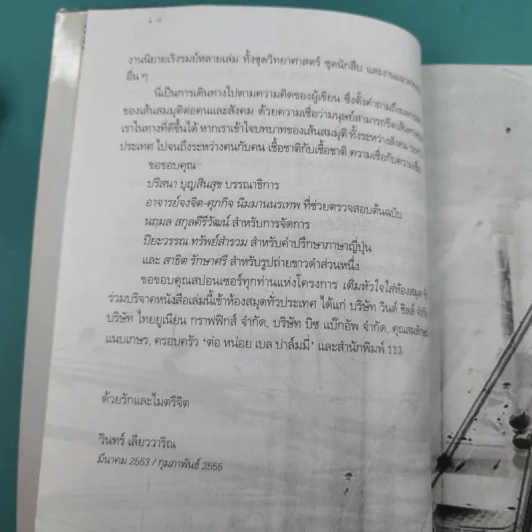 งานนิยายเริงรมย์หลายเล่ม ทั้งชุดวิทยาศาสตร์ ชุดนักสืบ และงานแนวทดลอง
อื่น ๆ
นี่เป็นการเดินทางไปตามความคิดของผู้เขียน ซึ่งตั้งคำถามถึง
ของเส้นสมมุติต่อคนและสังคม ด้วยความเชื่อว่ามนุษย์สามารถขีดเส้นทาง
เราในทางที่ดีขึ้นได้ หากเราเข้าใจบทบาทของเส้นสมมุติ ทั้งระหว่างสังคม
ประเทศ ไปจนถึงระหว่างคนกับคน เชื้อชาติกับเชื้อชาติ ความเชื่อกับความเชื่อ
ขอขอบคุณ
ปริสนา บุญสินสุข บรรณาธิการ
อาจารย์จงจิต-ศุภกิจ นิมมานนรเทพ ที่ช่วยตรวจสอบต้นฉบับ
นฤมล สกุลคีรีวัฒน์ สำหรับการจัดการ
ปิยะวรรณ ทรัพย์สำรวม สำหรับคำปรึกษาภาษาญี่ปุ่น
และ สาธิต รักษาศรี สำหรับรูปถ่ายขาวดำส่วนหนึ่ง
ขอขอบคุณสปอนเซอร์ทุกท่านแห่งโครงการ เติมหัวใจใส่ห้องสมุด
ร่วมบริจาคหนังสือเล่มนี้เข้าห้องสมุดทั่วประเทศ ได้แก่ บริษัท วินด์ ชิลล์ จำกัด
บริษัท ไทยยูเนี่ยน กราฟฟิกส์ จำกัด, บริษัท บิซ แบ๊กอัพ จำกัด,
แนบเกษร, ครอบครัว ‘ต่อ หน่อย เบล ปาล์มมี่’ และสำนักพิมพ์ 113
ด้วยรักและไมตรีจิต
วินทร์ เลียววาริณ
มีนาคม 2553 / กุมภาพันธ์ 2555